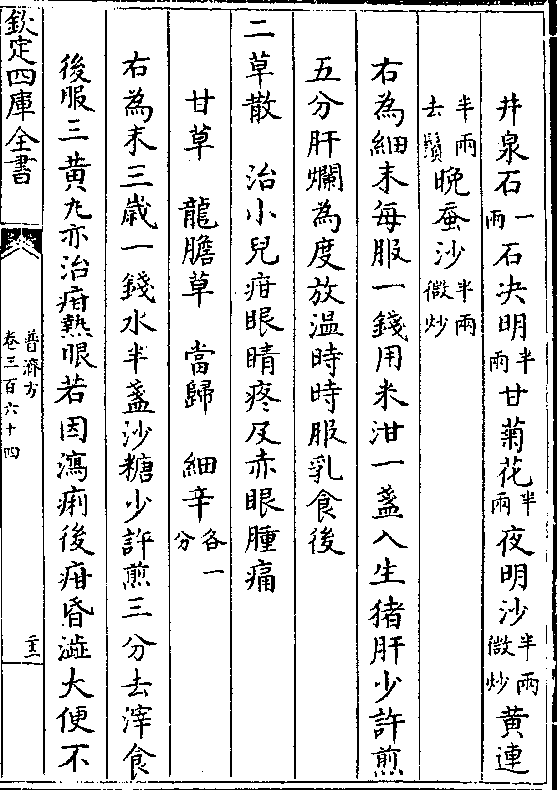 井泉石一兩石决明半兩甘菊花半兩夜明沙半兩微炒黄連
半兩去鬚晚蚕沙半兩微炒
右為細末每服一錢用米泔一盞入生猪肝少許煎
五分肝爛為度放温時時服乳食後
二草散　治小兒疳眼睛疼及赤眼腫痛
甘草　龍膽草　當歸　細辛各一分
右為末三歲一錢水半盞沙糖少許煎三分去滓食
後服三黄丸亦治疳熱眼若因瀉痢後疳昏澁大便不
欽定四庫全書
普濟方
卷三百六十四
二十三